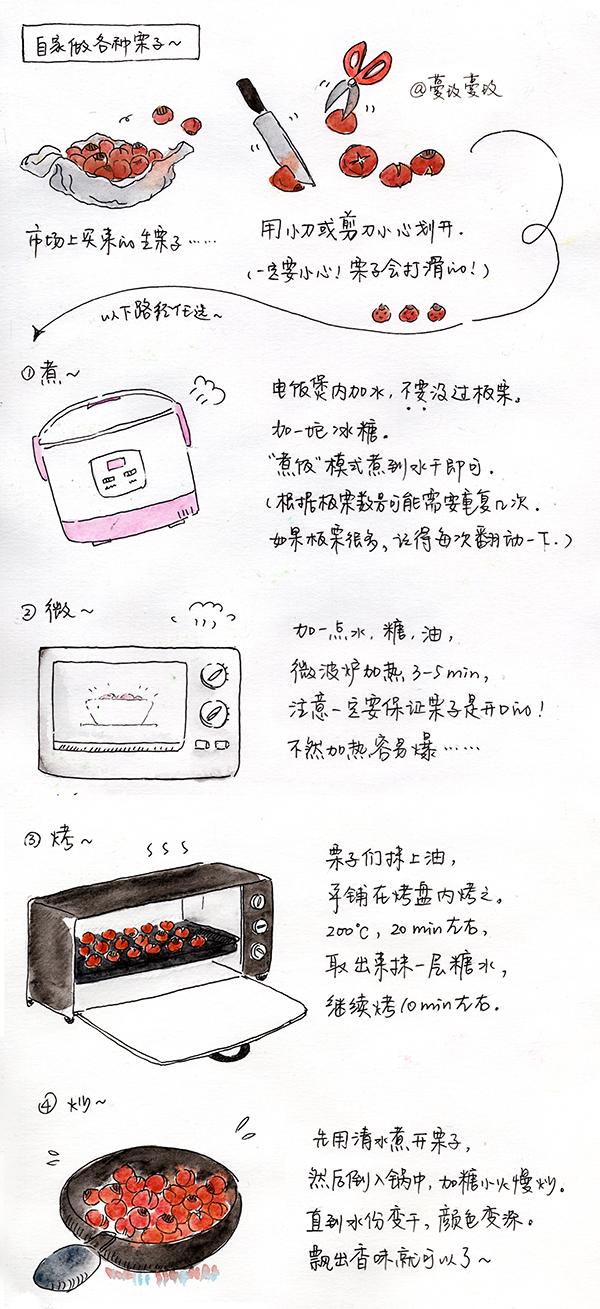 自家做各种栗子~
@蔓玫蔓玫
市场上买来的生栗子……
用小刀或剪刀小心划开.
(一定要小心！栗子会打滑的！)
以下路径任选~
①煮~
电饭煲内加水，不要没过板栗。
加一坨冰糖.
"煮饭"模式煮到水干即可.
(根据板栗数量可能需要重复几次.
如果板栗很多，记得每次翻动一下.)
②微~
加一点水，糖，油，
微波炉加热 3-5min，
注意一定要保证栗子是开口的！
不然加热容易爆……
③烤~
栗子们抹上油，
平铺在烤盘内烤之。
200℃，20min左右，
取出来抹一层糖水，
继续烤10min左右.
④炒~
先用清水煮开栗子，
然后倒入锅中，加糖小火慢炒。
直到水份变干，颜色变深。
飘出香味就可以了~